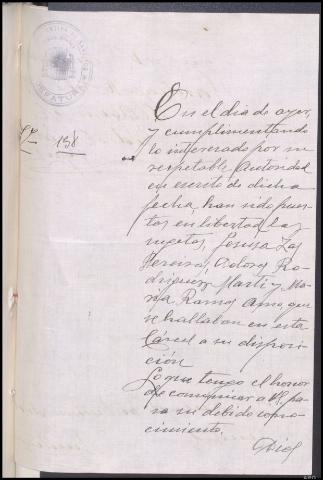 Nº 158
En el dia de ayer,
y cumplimentando
lo interesado por su
respetable autoridad
en escrito de dicha
fecha, han sido pues-
tas en libertad las
sugetas, Jesusa
Pereira, Dolores Ro-
driguez Martí y Ma-
ria Ramos Amo que
se hallaban en esta
Cárcel a su disposi-
ción
Lo que tengo el honor
de comunicar a V. pa-
ra su debido cono-
cimiento.
Dios